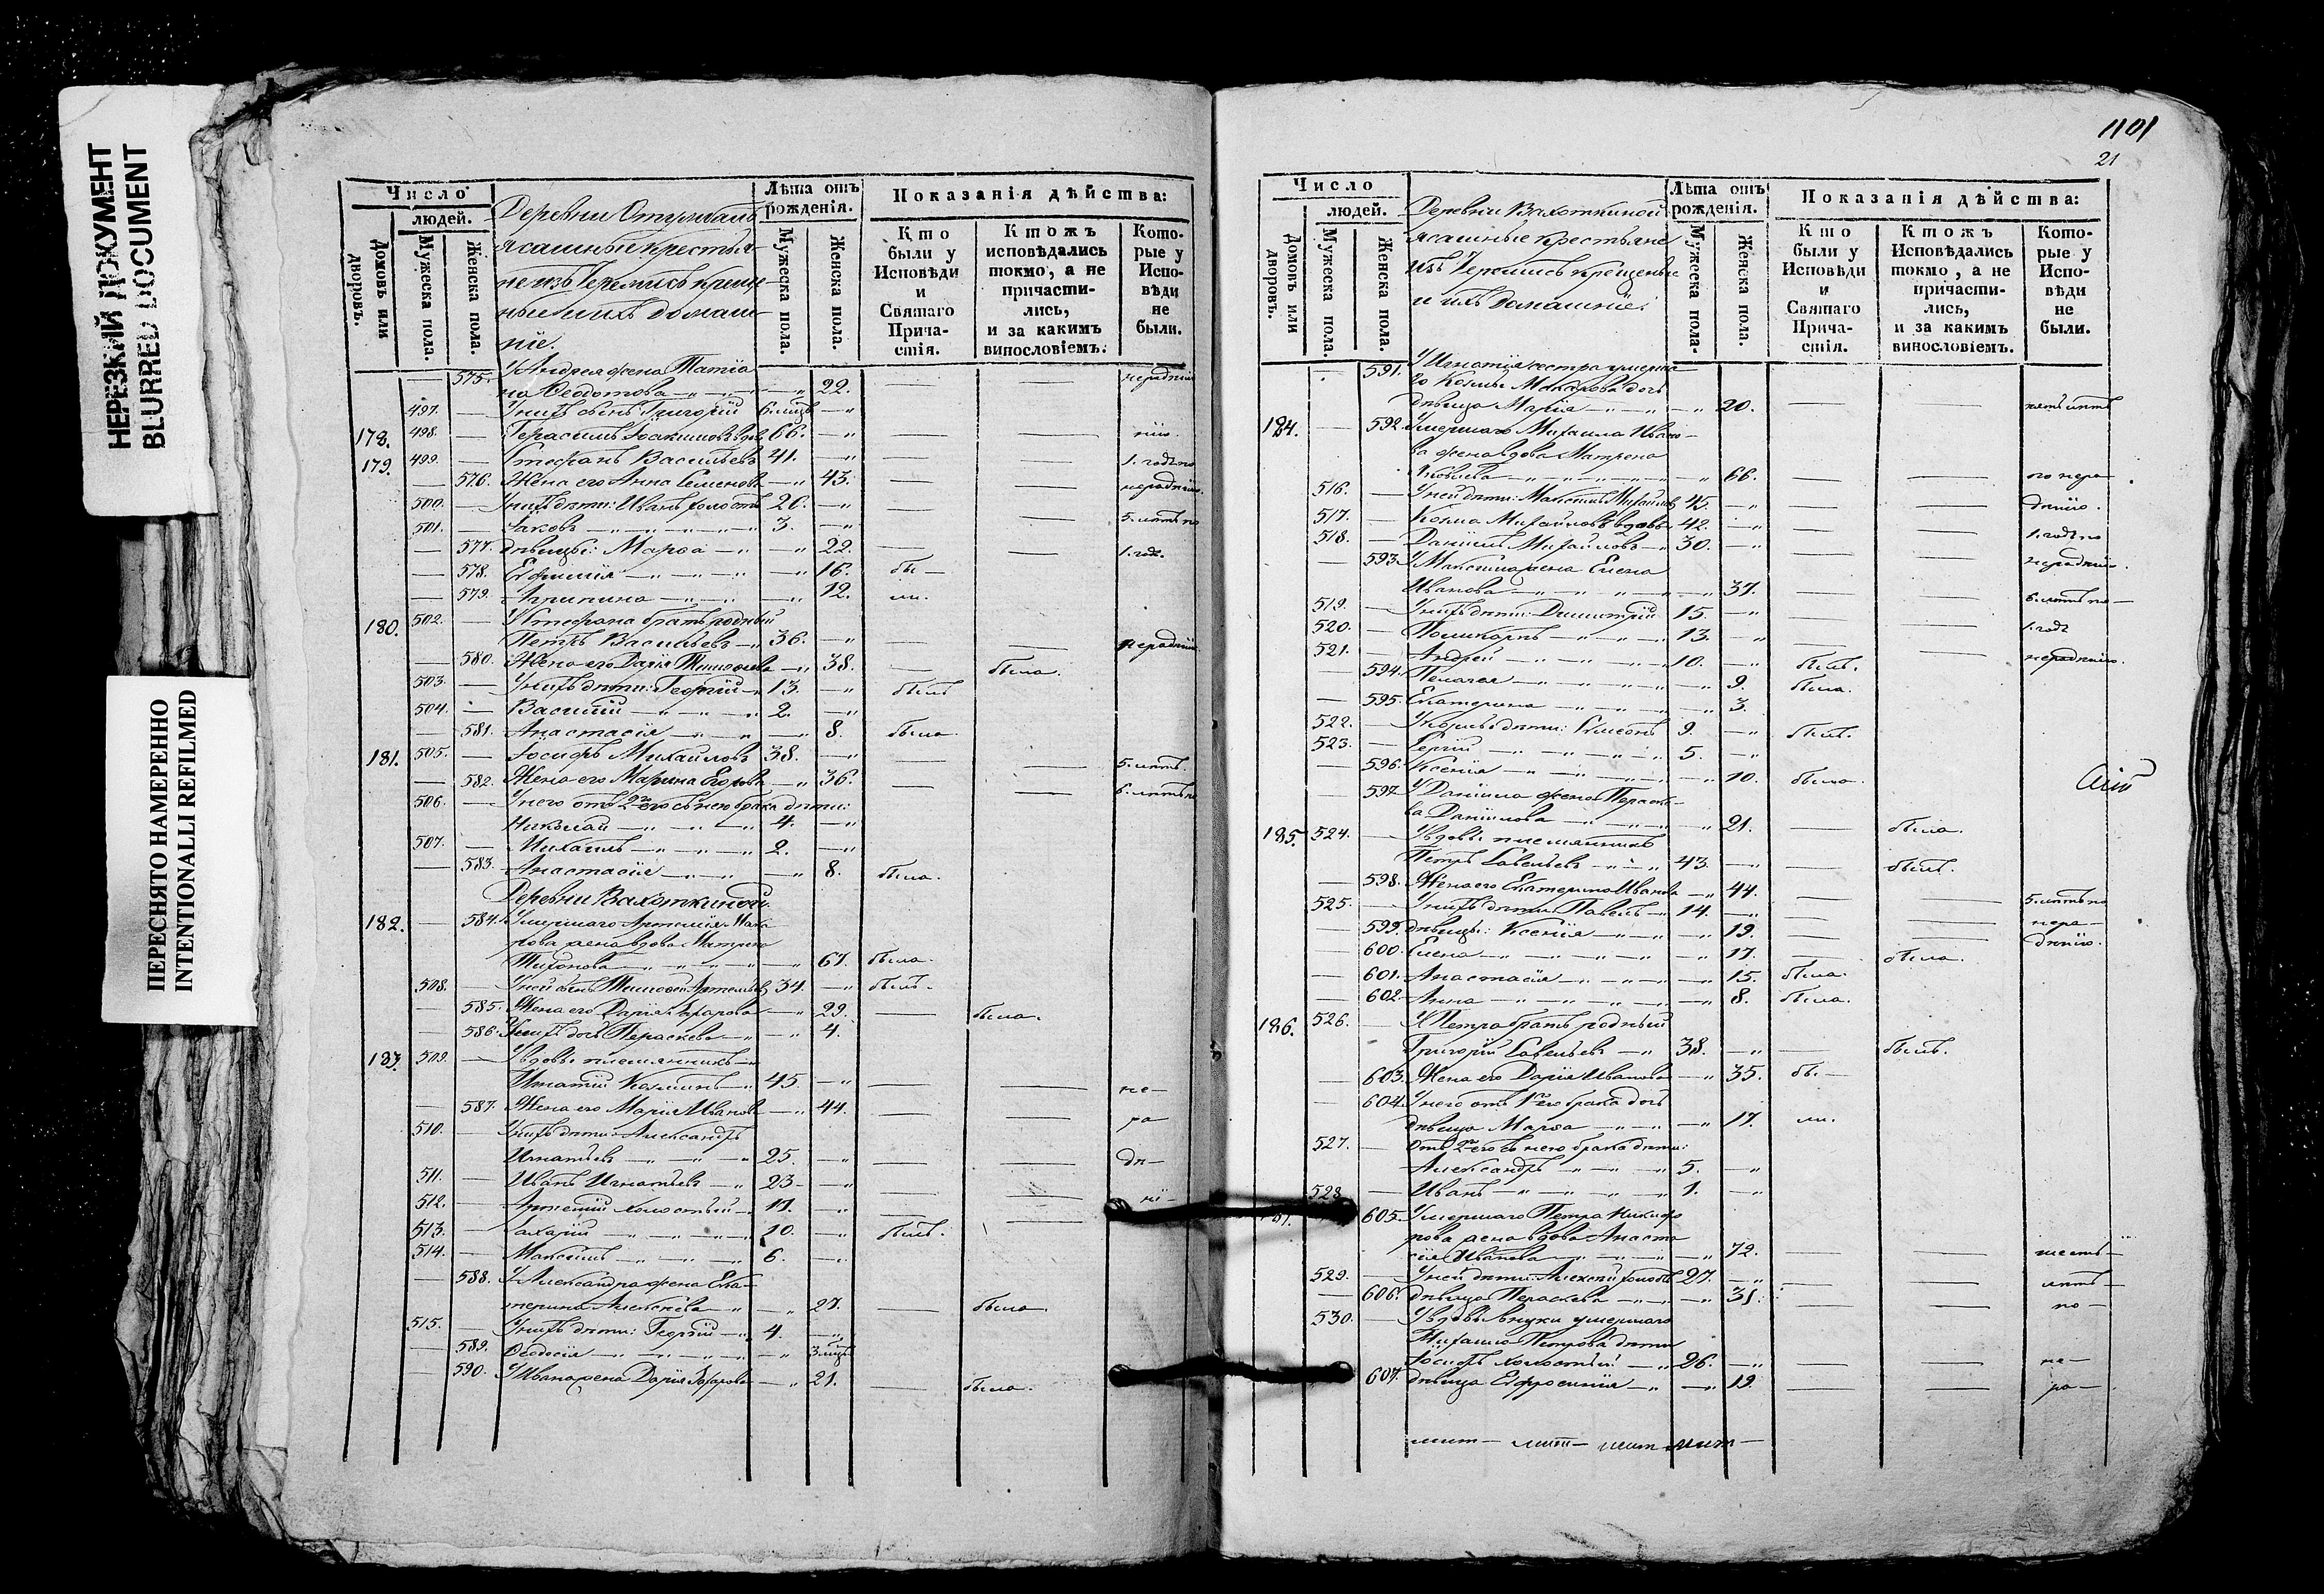 НЕРЕЗКИЙ ДОКУМЕНТ
BLURRED DOCUMENT
ПЕРЕСНЯТО НАМЕРЕННО
INTENTIONALLI REFILMED
Число
людей.
Домовъ или дворовъ.
Мужеска пола.
Женска пола.
Деревни
ясашные крестья-
не изъ Черемисъ креще-
ные и ихъ домаш-
ніе.
Лѣта отъ рожденія.
Мужеска пола.
Женска пола.
Показанія дѣйства:
Кто были у Исповѣди и Святаго Прича- стія.
Ктожъ исповѣдались токмо, а не причасти- лись, и за какимъ винословіемъ.
Кото- рые у Испо- вѣди не были.
575. У Андрея жена Татіа-
на Ѳедотова 22.
497. У нихъ сынъ Григорій 6. мцъ
178. 498. Герасимъ Іоакимовъ вдовъ 66.
179. 499. Стефанъ Васильевъ 41. 1. годъ по
576. Жена его Анна Семенова 43. нерадѣнію.
500. У нихъ дѣти: Иванъ холостъ 20.
501. Іаковъ 3. 5. лѣтъ по
577. дѣвицы: Марѳа 22. 1. год.
578. Евфимія 16. бы-
579. Агрипина 12. ли.
180. 502. У Стефана братъ родный
Петръ Васильевъ 36. нерадѣнію
580. Жена его Дарія Тимофеева 38. была.
503. У нихъ дѣти: Георгій 13. былъ
504. Василій 2.
581. Анастасія 8. была
181. 505. Іосифъ Михайловъ 38. 5. лѣтъ.
582. Жена его Марина Егорова 36. 6. лѣтъ по
506. У него отъ 2го съ нею брака дѣти:
Николай 4.
507. Михаилъ 2.
583. Анастасія 8. была.
Деревни Вахоткиной.
182. 584. Умершаго Артемія Мака-
рова жена вдова Матрена
Тихонова 67. была.
508. У ней сынъ Тимофей Артемьевъ 34. былъ.
585. Жена его Дарія Захарова 29. была.
586. У нихъ дочь Параскева 4.
183. 509. У вдовы племянникъ
Игнатій Козминъ 45. не-
587. Жена его Марія Иванова 44. ра
510. У нихъ дѣти: Александръ
Игнатьевъ 25. дѣ-
511. Иванъ Игнатьевъ 23 ні-
512. Арсеній холостый 17.
513. Захарій 10. былъ.
514. Максимъ 6.
588. У Александра жена Ека-
терина Алексѣева 27. была
515. У нихъ дѣти: Георгій 4.
589. Ѳеодосія 3 мцъ
590. У Ивана жена Дарія Захарова 21. была.
1101
21
Число
людей.
Домовъ или дворовъ.
Мужеска пола.
Женска пола.
Деревни Вахоткиной
ясашные крестьяне
изъ Черемисъ крещеные
и ихъ домашніе:
Лѣта отъ рожденія.
Мужеска пола.
Женска пола.
Показанія дѣйства:
Кто были у Исповѣди и Святаго Прича- стія.
Ктожъ Исповѣдались токмо, а не причасти- лись, и за какимъ винословіемъ.
Кото- рые у Испо- вѣди не были.
591. У Игнатія сестра умерша-
го Козмы Макарова дочь
дѣвица Марія 20. пять лѣтъ
184. 592. Умершаго Михаила Ивано-
ва жена вдова Матрена
Яковлева 66. по нера-
516. У ней дѣти: Максимъ Михайловъ 45. дѣнію.
517. Козма Михайловъ вдовъ 42. 1. годъ по
518. Даніилъ Михайловъ 30. нерадѣнію.
593. У Максима жена Елена
Иванова 37. 6. лѣтъ по-
519. У нихъ дѣти: Димитрій 15. 1. годъ
520. Поликарпъ 13. нерадѣнію.
521. Андрей 10. былъ.
594. Пелагея 9. была.
595. Екатерина 3.
522. У Козмы дѣти: Симеонъ 9. былъ.
523. Сергій 5.
596. Ксенія 10. была.
597. У Даніила жена Параске-
ва Даніилова 21. была.
185. 524. У вдовы племянникъ
Петръ Савельевъ 43. былъ.
598. Жена его Екатерина Иванова 44. 5. лѣтъ по
525. У нихъ дѣти: Павелъ 14. нера-
599. дѣвицы: Ксенія 19. дѣнію.
600. Елена 17. была.
601. Анастасія 15. была.
602. Анна 8. была.
186. 526. У Петра братъ родный
Григорій Савельевъ 38. былъ.
603. Жена его Дарія Иванова 35. бы-
604. У него отъ 1го брака дочь
дѣвица Марѳа 17. ли.
527. Отъ 2го съ нею брака дѣти:
Александръ 5.
528. Иванъ 1.
187. 605. Умершаго Петра Никифо-
рова жена вдова Анаста-
сія Иванова 72. шесть-
529. У ней дѣти: Алексѣй холостъ 27. лѣтъ-
606. дѣвица Параскева 31. по-
530. У вдовы внуки умершаго
Михаила Петрова дѣти
Іосифъ холостый 26. не-
607. дѣвица Евфросинія 19. ра-